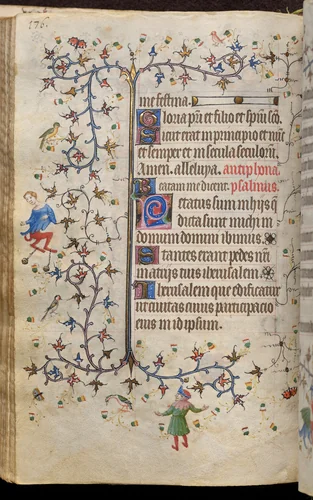 176.
me festina.
Gloria pr̃i et filio et spũi scõ.
Sicut erat in principio et nũc
et semper et in secula seculor̃.
Amen. alleluya. antiphona
Beatam me dicent. psalmus.
Letatus sum in hijs q̃
dicta sunt michi in
domum domini ibimus.
Stantes erant pedes nr̃i
in atrijs tuis iherusalem.
Iherusalem que edificatur
ut civitas cuius participacio
eius in id ipsum.